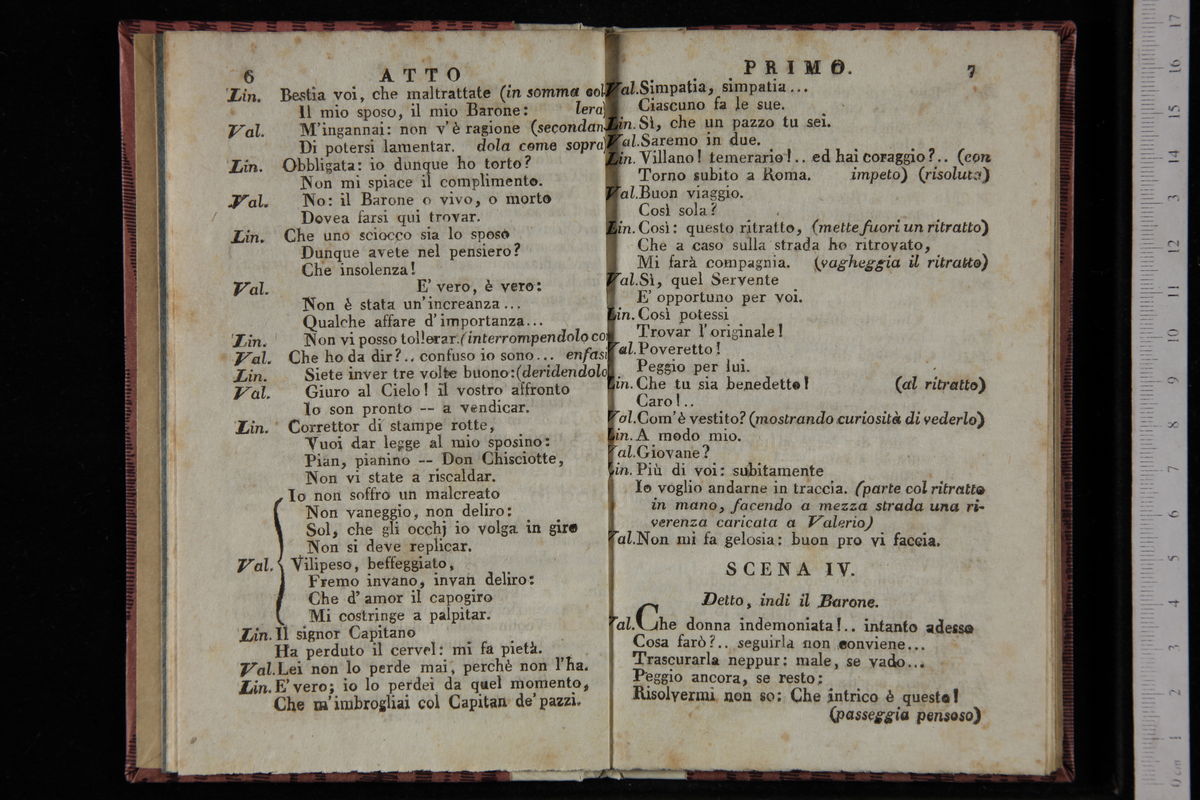 6 ATTO
Lin. Bestia voi, che maltrattate (in somma col-
Il mio sposo, il mio Barone: lera)
Val. M'ingannai: non v'è ragione (secondan-
Di potersi lamentar. dola come sopra)
Lin. Obbligata: io dunque ho torto?
Non mi spiace il complimento.
Val. No: il Barone o vivo, o morto
Dovea farsi qui trovar.
Lin. Che uno sciocco sia lo sposo
Dunque avete nel pensiero?
Che insolenza!
Val. E' vero, è vero:
Non è stata un'increanza...
Qualche affare d'importanza...
Lin. Non vi posso tollerar. (interrompendolo co
Val. Che ho da dir?.. confuso io sono... enfasi
Lin. Siete inver tre volte buono: (deridendolo
Val. Giuro al Cielo! il vostro affronto
Io son pronto -- a vendicar.
Lin. Correttor di stampe rotte,
Vuoi dar legge al mio sposino:
Pian, pianino -- Don Chisciotte,
Non vi state a riscaldar.
Io non soffro un malcreato
Non vaneggio, non deliro:
Sol, che gli occhj io volga in giro
Non si deve replicar.
Val. Vilipeso, beffeggiato,
Fremo invano, invan deliro:
Che d'amor il capogiro
Mi costringe a palpitar.
Lin. Il signor Capitano
Ha perduto il cervel: mi fa pietà.
Val. Lei non lo perde mai, perchè non l'ha.
Lin. E' vero; io lo perdei da quel momento,
Che m'imbrogliai col Capitan de' pazzi.
PRIMO. 7
Val. Simpatia, simpatia...
Ciascuno fa le sue.
Lin. Sì, che un pazzo tu sei.
Val. Saremo in due.
Lin. Villano! temerario!.. ed hai coraggio?.. (con
Torno subito a Roma. impeto) (risoluta)
Val. Buon viaggio.
Così sola?
Lin. Così: questo ritratto, (mette fuori un ritratto)
Che a caso sulla strada ho ritrovato,
Mi farà compagnia. (vagheggia il ritratto)
Val. Sì, quel Servente
E' opportuno per voi.
Lin. Così potessi
Trovar l'originale!
Val. Poveretto!
Peggio per lui.
Lin. Che tu sia benedetto! (al ritratto)
Caro!..
Val. Com'è vestito? (mostrando curiosità di vederlo)
Lin. A modo mio.
Val. Giovane?
Lin. Più di voi: subitamente
Io voglio andarne in traccia. (parte col ritratto
in mano, facendo a mezza strada una ri-
verenza caricata a Valerio)
Val. Non mi fa gelosia: buon pro vi faccia.
SCENA IV.
Detto, indi il Barone.
Val. Che donna indemoniata!.. intanto adesso
Cosa farò?.. seguirla non conviene...
Trascurarla neppur: male, se vado...
Peggio ancora, se resto:
Risolvermi non so: Che intrico è questo!
(passeggia pensoso)
0 cm 1 2 3 4 5 6 7 8 9 10 11 12 13 14 15 16 17